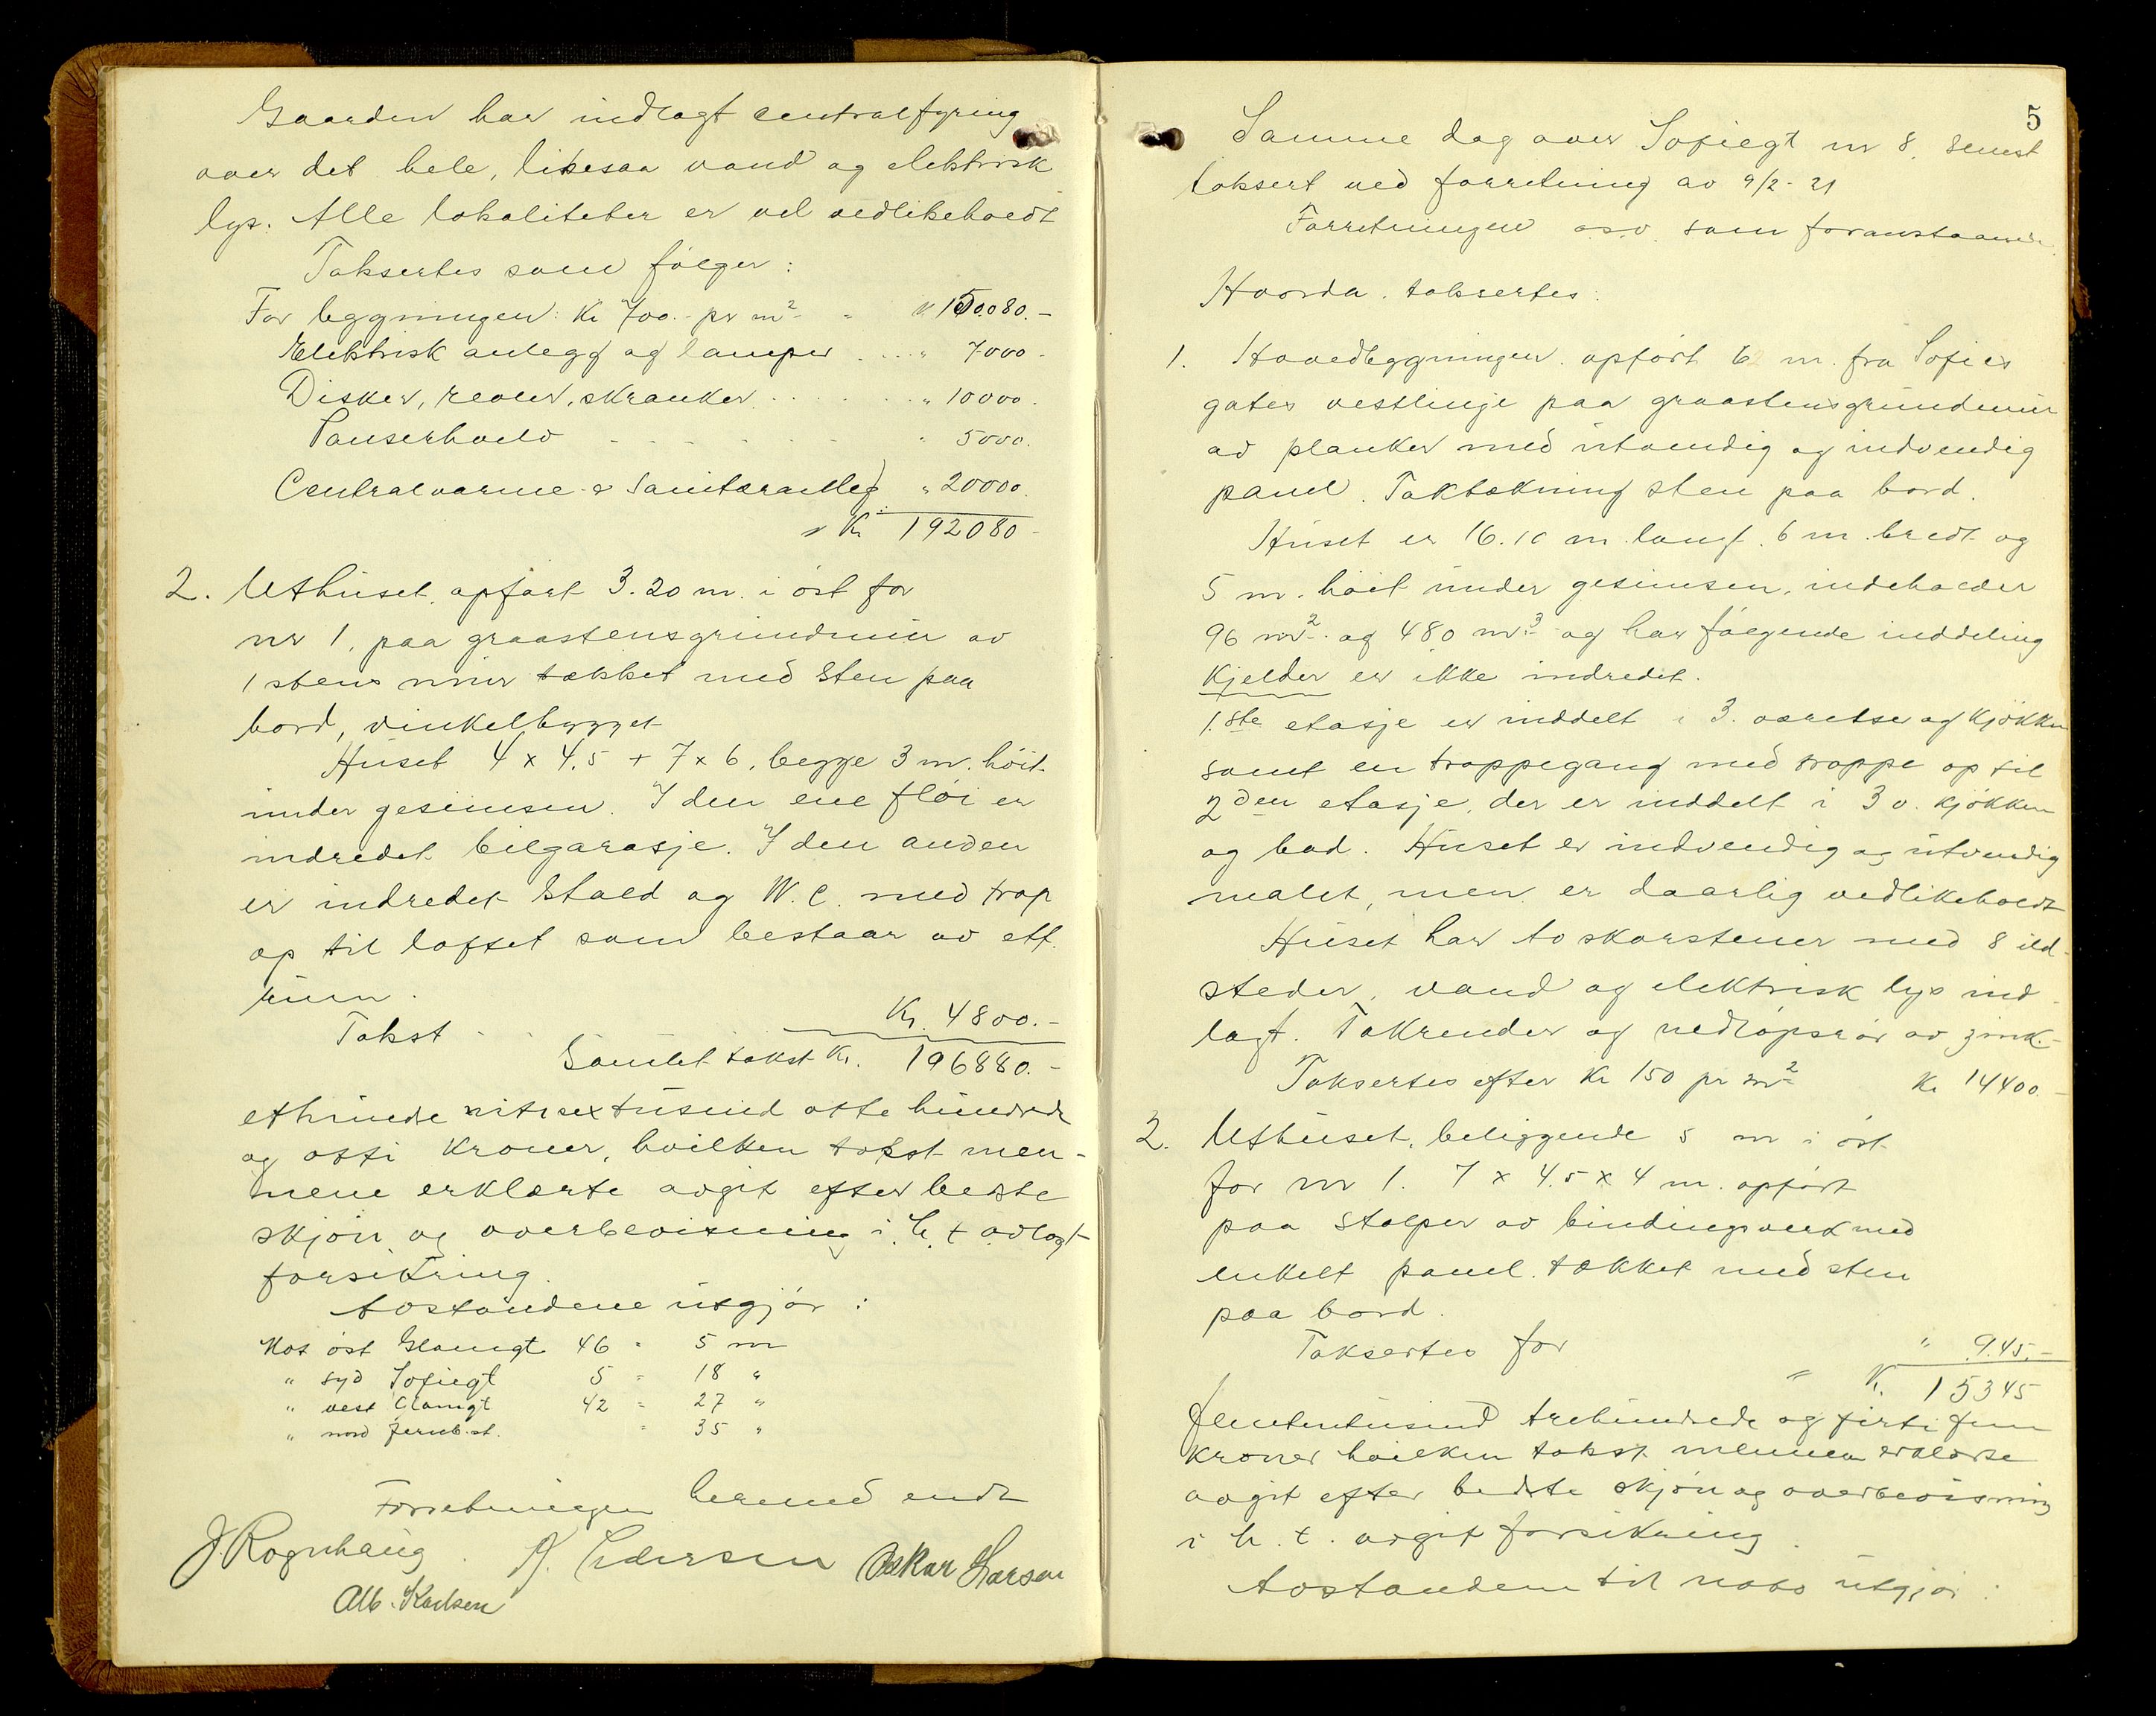 Gaarden har indlagt centralfyring
over det hele, likesaa vand og elektrisk
lys. Alle lokaliteter er vel vedlikeholdt
Taksertes som følger:
For bygningen: Kr 700.- pr m² - " 150.080.-
Elektrisk anlegg og lamper .... " 7000.-
Disker, reoler, skranker ...... " 10000.
Panserhvelv - - - - - - " 5000.
Centralvarme & Sanitæranlleg " 20000.
" Kr 192080-
2. Uthuset, opført 3.20 m. i øst for
nr 1, paa graastensgrundmur av
1 stens mur tækket med sten paa
bord, vinkelbygget
Huset 4 x 4,5 + 7 x 6, begge 3 m. høit
under gesimsen. I den ene fløi er
indredet bilgarasje. I den anden
er indredet stald og W.C. med trap
op til loftet som bestaar av ett
rum.
Takst - - Kr. 4800.-
Samlet takst Kr. 196880.-
ethundre nitisextusind otte hundrede
og otti kroner, hvilken takst men-
nene erklærte avgit efter bedste
skjøn og overbevisning i h. t avlagt
forsikring.
Avstandene utgjør:
Mot øst Glamgt 46 = 5 m
" syd Sofiegt 5 = 18 "
" vest Glamgt 42 = 27 "
" nord Jernb.st. = 35 "
Forretningen hermed endt
J. Rognhaug. A. Pedersen Oskar Larsen
Alb. Karlsen
5
Samme dag over Sofiegt nr 8, senest
taksert ved forretning av 9/2-21
Forretningen osv. som foranstaaende
Hvorda. taksertes:
1. Hovedbygningen opført 6 m. fra Sofies
gates vestlinje paa graastensgrundmur
av planker med utvendig og indvendig
panel. Taktækning sten paa bord.
Huset er 16.10 m. langt. 6 m. bredt og
5 m. høit under gesimsen, indeholder
96 m². og 480 m³ og har følgende inddeling
Kjelder er ikke indredet.
1.ste etasje er inddelt i 3. værelser og kjøkken
samt en trappegang med trappe op til
2den etasje, der er inddelt i 3 v. kjøkken
og bad. Huset er indvendig og utvendig
malet, men er daarlig vedlikeholdt
Huset har to skorstener med 8 ild-
steder, vand og elektrisk lys ind-
lagt. Takrender og nedløpsrør av zink.-
Taksertes efter Kr 150 pr m² Kr 14400.-
2. Uthuset, beliggende 5 m i øst
for nr 1. 7 x 4.5 x 4 m. opført
paa stolper av bindingsverk med
enkelt panel. tækket med sten
paa bord.
Taksertes for " 9.45.-
" Kr. 15345
femtentusind trehundrede og firti fem
kroner hvilken takst mennene erklærte
avgit efter bedste skjøn og overbevisning
i h. t. avgit forsikring.
Avstandene til nabo utgjør: